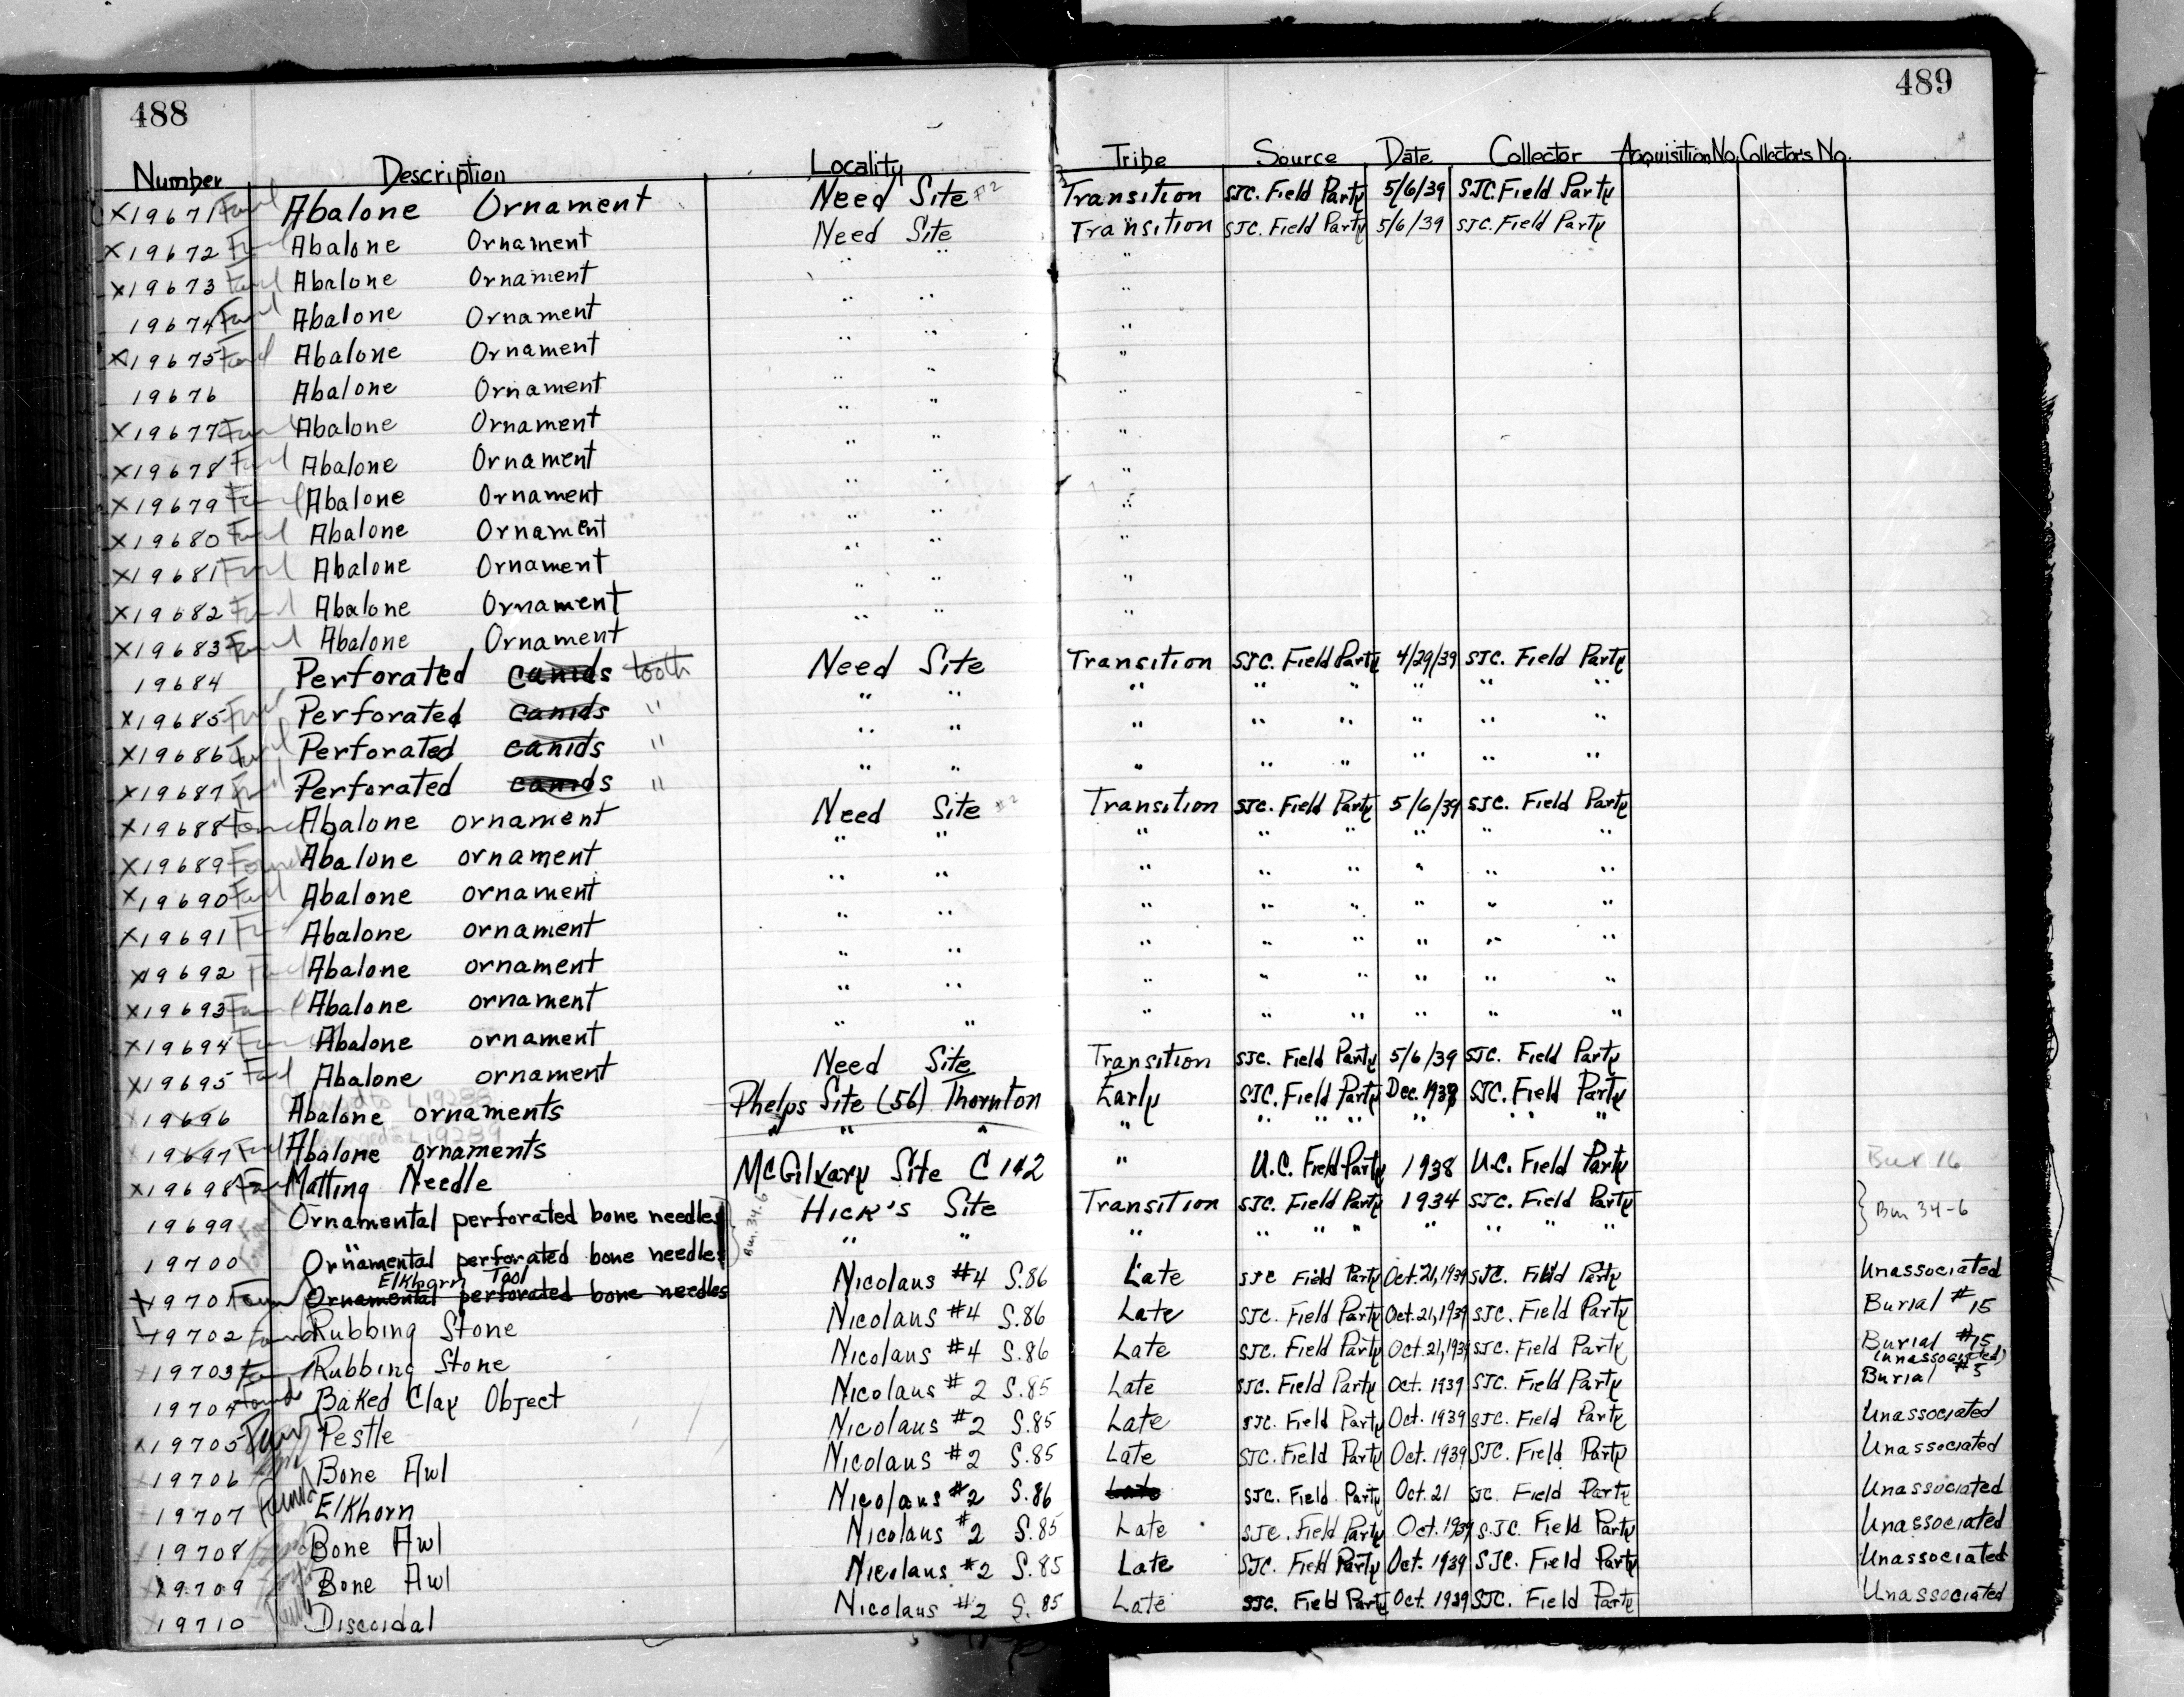 488
489
Number Description Locality Tribe Source Date Collector Acquisition No. Collector's No.
X19671 Found Abalone Ornament Need Site #2 Transition SJC. Field Party 5/6/39 SJC. Field Party
X19672 Abalone Ornament Need Site Transition SJC. Field Party 5/6/39 SJC. Field Party
X19673 Abalone Ornament " " "
19674 Abalone Ornament " " "
X19675 Abalone Ornament " " "
19676 Abalone Ornament " " "
X19677 Abalone Ornament " " "
X19678 Abalone Ornament " " "
X19679 Abalone Ornament " " "
X19680 Abalone Ornament " " "
X19681 Abalone Ornament " " "
X19682 Abalone Ornament " " "
X19683 Abalone Ornament " " "
19684 Perforated canids tooth Need Site Transition SJC. Field Party 4/29/39 SJC. Field Party
X19685 Perforated canids " " " " " " " " "
X19686 Perforated canids " " " " " " " " "
X19687 Perforated canids " " " " " " " " "
X19688 Found Abalone ornament Need Site #2 Transition SJC. Field Party 5/6/39 SJC. Field Party
X19689 Found Abalone ornament " " " " " " " "
X19690 Abalone ornament " " " " " " " "
X19691 Abalone ornament " " " " " " " "
X19692 Abalone ornament " " " " " " " "
X19693 Abalone ornament " " " " " " " "
X19694 Abalone ornament " " " " " " " "
X19695 Abalone ornament Need Site Transition SJC. Field Party 5/6/39 SJC. Field Party
changed to L19288
19696 Abalone ornaments Phelps Site (56) Thornton Early SJC. Field Party Dec. 1938 SJC. Field Party
changed to L19289
19697 Abalone ornaments " " " " " " " " " " "
X19698 Matting Needle McGilvary Site C 142 " U.C. Field Party 1938 U.C. Field Party Bur 16
19699 Ornamental perforated bone needles Hick's Site Transition SJC. Field Party 1934 SJC. Field Party Bur 34-6
19700 Ornamental perforated bone needles " " " " " " " " " "
Bur. 34.6
Elkhorn Tool
X1970 Found Ornamental perforated bone needles Nicolaus #4 S.86 Late SJC Field Party Oct. 21, 1939 SJC. Field Party Unassociated
19702 Found Rubbing Stone Nicolaus #4 S.86 Late SJC. Field Party Oct. 21, 1939 SJC. Field Party Burial #15
X19703 Rubbing Stone Nicolaus #4 S.86 Late SJC. Field Party Oct. 21, 1939 SJC. Field Party Burial #15
(unassociated)
19704 Found Baked Clay Object Nicolaus #2 S.85 Late SJC. Field Party Oct. 1939 SJC. Field Party Burial #3
X19705 Pestle Nicolaus #2 S.85 Late SJC. Field Party Oct. 1939 SJC. Field Party Unassociated
19706 Bone Awl Nicolaus #2 S.85 Late SJC. Field Party Oct. 1939 SJC. Field Party Unassociated
19707 Found Elkhorn Nicolaus #2 S.86 Late SJC. Field Party Oct. 21 SJC. Field Party Unassociated
19708 Bone Awl Nicolaus #2 S.85 Late SJC. Field Party Oct. 1939 SJC. Field Party Unassociated
X9709 Bone Awl Nicolaus #2 S.85 Late SJC. Field Party Oct. 1939 SJC. Field Party Unassociated
19710 Discoidal Nicolaus #2 S. 85 Late SJC. Field Party Oct. 1939 SJC. Field Party Unassociated